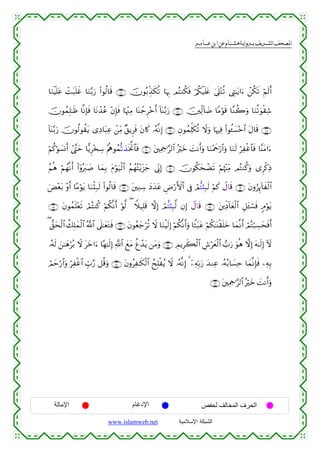 المصحف الشريف برواية هشام عن ابن عامر
أَلَمْ تَكُنْ ءَايَٰتِى تُتْلَىٰ عَلَيْكُمْ فَكُنتُم بِهَا تُكَذِّبُونَ قَالُوا۟ رَبَّنَا غَلَبَتْ عَلَيْنَا
شِقْوَتُنَا وَكُنَّا قَوْمًا ضَآلِّينَ رَبَّنَآ أَخْرِجْنَا مِنْهَا فَإِنْ عُدْنَا فَإِنَّا ظَٰلِمُونَ
قَالَ ٱخْسَـُٔوا۟ فِيهَا وَلَا تُكَلِّمُونِ إِنَّهُۥ كَانَ فَرِيقٌ مِّنْ عِبَادِى يَقُولُونَ رَبَّنَآ
ءَامَنَّا فَٱغْفِرْ لَنَا وَٱرْحَمْنَا وَأَنتَ خَيْرُ ٱلرَّٰحِمِينَ فَٱتَّخَذتُّمُوهُمْ سِخْرِيًّا حَتَّىٰٓ أَنسَوْكُمْ
ذِكْرِى وَكُنتُم مِّنْهُمْ تَضْحَكُونَ إِنِّى جَزَيْتُهُمُ ٱلْيَوْمَ بِمَا صَبَرُوٓا۟ أَنَّهُمْ هُمُ
ٱلْفَآئِزُونَ قَالَ كَمْ لَبِثتُّمْ فِى ٱلْأَرْضِ عَدَدَ سِنِينَ قَالُوا۟ لَبِثْنَا يَوْمًا أَوْ بَعْضَ
يَوْمٍ فَسْـَٔلِ ٱلْعَآدِّينَ قَالَ إِن لَّبِثتُّمْ إِلَّا قَلِيلًا لَّوْ أَنَّكُمْ كُنتُمْ تَعْلَمُونَ
أَفَحَسِبْتُمْ أَنَّمَا خَلَقْنَٰكُمْ عَبَثًا وَأَنَّكُمْ إِلَيْنَا لَا تُرْجَعُونَ فَتَعَٰلَى ٱللَّهُ ٱلْمَلِكُ ٱلْحَقُّ
لَآ إِلَٰهَ إِلَّا هُوَ رَبُّ ٱلْعَرْشِ ٱلْكَرِيمِ وَمَن يَدْعُ مَعَ ٱللَّهِ إِلَٰهًا ءَاخَرَ لَا بُرْهَٰنَ لَهُۥ
بِهِۦ فَإِنَّمَا حِسَابُهُۥ عِندَ رَبِّهِۦٓ إِنَّهُۥ لَا يُفْلِحُ ٱلْكَٰفِرُونَ وَقُل رَّبِّ ٱغْفِرْ وَٱرْحَمْ
وَأَنتَ خَيْرُ ٱلرَّٰحِمِينَ
الحرف المخالف لحفص الإدغام الإمالة
www.islamweb.net الشبكة الإسلامية